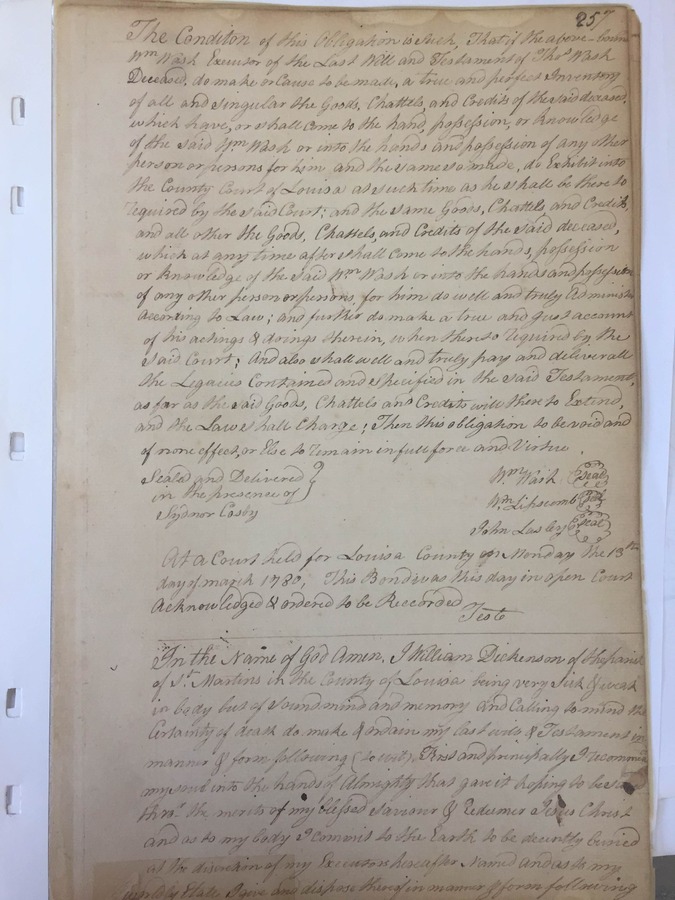 257
The Conditon of this Obligation is Such, That if the above-boun
Wm Wash Executor of the Last Will and Testament of Thos Wash
Deceased, do make or Cause to be made, a true and perfect Inventory
of all and singular the Goods, Chattels, and Credits of the said deceased,
which have, or shall come to the hand, possession, or knowledge
of the said Wm Wash or into the hands and possession of any other
person or persons for him, and the same so made, do Exhibit into
the County Court of Louisa at such time as he shall be thereto
required by the said Court; and the same Goods, Chattels and Credits,
and all other the Goods, Chattels, and Credits of the said deceased,
which at any time after shall come to the hands, possession
or knowledge of the Said Wm Wash or into the hands and possession
of any other person or persons, for him do well and truly Administer
according to Law; and further do make a true and just account
of his actings & doings therein, when thereto required by the
Said Court; And also shall well and truly pay and deliver all
the Legacies Contained and specified in the said Testament,
as far as the said Goods, Chattels and Credits will thereto Extend,
and the Law shall Charge; Then this obligation to be void and
of none effect, or Else to remain in full force and Virtue.
Sealed and Delivered } Wm Wash Seal
in the presence of Wm Lipscomb Seal
Sydnor Cosby John Lasley Seal
At a Court held for Louisa County on Monday the 13th
day of march 1780, This Bond was this day in open Court
Acknowledged & ordered to be Reccorded
Teste
In the Name of God Amen, I William Dickenson of the parish
of St. Martins in the County of Louisa being very Sick & weak
in body but of sound mind and memory and Calling to mind the
Certainty of death do make & ordain my last will & Testament in
manner & form following (to wit) First and principally I recommend
my soul into the hands of Almighty that gave it hoping to be
thro' the merits of my blessed Saviour & Redeemer Jesus Christ
and as to my body I commit to the Earth to be decently buried
at the discretion of my Executors hereafter Named and as to my
worldly Estate I give and dispose thereof in manner & form following